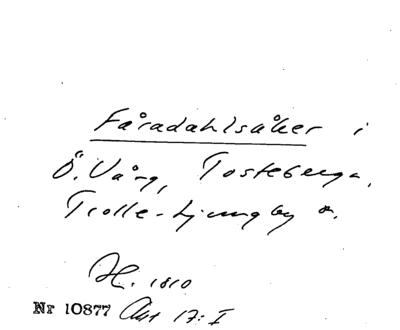 Fåradahlsåker i
Ö. Vång, Tosteberga,
Trolle-Ljungby o.
H. 1810
Nr 10877 Akt 17:I